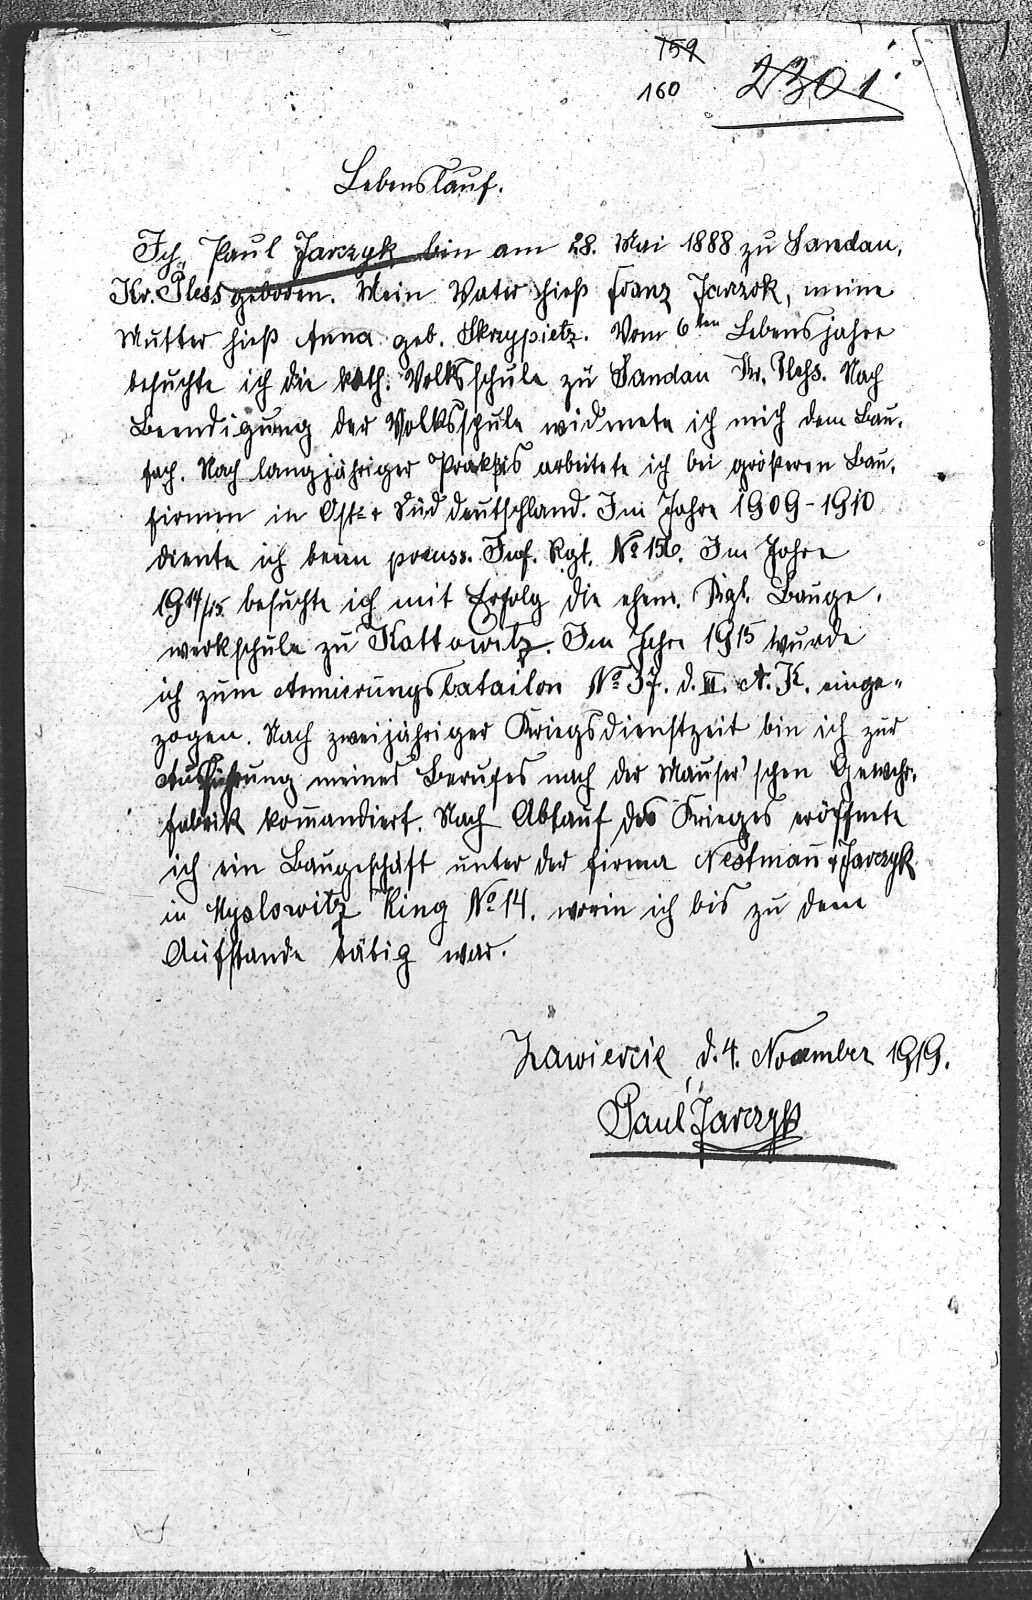 159
160
2301
Lebenslauf.
Ich, Paul Jarczyk bin am 28. Mai 1888 zu Sandau,
Kr. Pless geboren. Mein Vater hieß Franz Jarczok, meine
Mutter hieß Anna geb. Skrzyppietz. Vom 6ten Lebensjahre
besuchte ich die kath. Volksschule zu Sandau Kr. Pless. Nach
Beendigung der Volksschule widmete ich mich dem Bau-
fach. Nach langjähriger Praksis arbeitete ich bei größeren Bau-
firmen in Ost- + Süddeutschland. Im Jahre 1909-1910
diente ich beim preuss. Inf. Rgt. No 156. Im Jahre
1914/15 besuchte ich mit Erfolg die ehem. Kgl. Bauge-
werkschule zu Kattowitz. Im Jahre 1915 wurde
ich zum Armierungsbatailon No 37. d. III. A. K. einge-
zogen. Nach zweijähriger Kriegsdienstzeit bin ich zur
Ausführung meines Berufes nach der Mauser'schen Gewehr-
fabrik kom̄andiert. Nach Ablauf des Krieges eröffnete
ich ein Baugeschäft unter der Firma Nestman̄ + Jarczyk
in Myslowitz Ring No 14. worin ich bis zu dem
Aufstande tätig war.
Zawiercie, d. 4. November 1919.
Paul Jarczyk